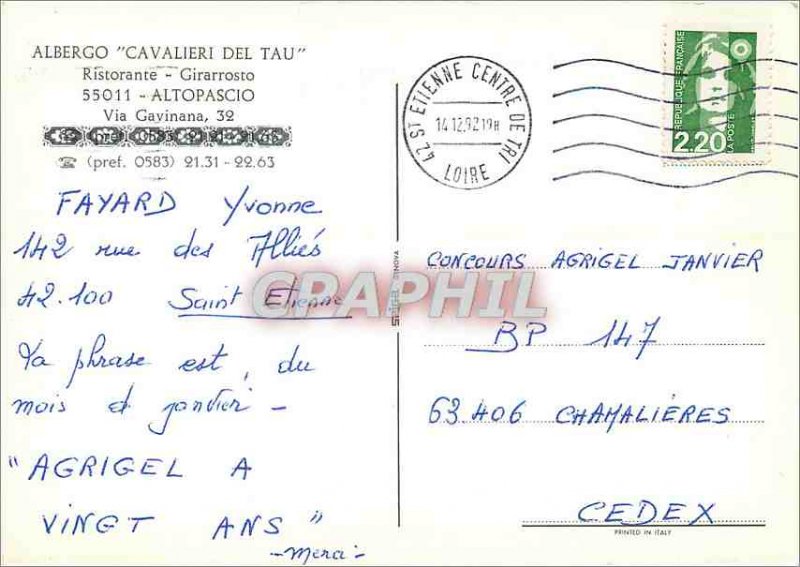 ALBERGO "CAVALIERI DEL TAU"
Ristorante - Girarrosto
55011 - ALTOPASCIO
Via Gavinana, 32
(pref. 0583) 21.31 - 22.63
FAYARD Yvonne
142 rue des Alliés
42.100 Saint Etienne
La phrase est, du
mois d janvier -
"AGRIGEL A
VINGT ANS"
- merci -
42 ST ETIENNE CENTRE DE TRI
14.12.92 19H
LOIRE
REPUBLIQUE FRANÇAISE
2.20
LA POSTE
CONCOURS AGRIGEL JANVIER
BP 147
63.406 CHAMALIÈRES
CEDEX
PRINTED IN ITALY
CPAPHIL